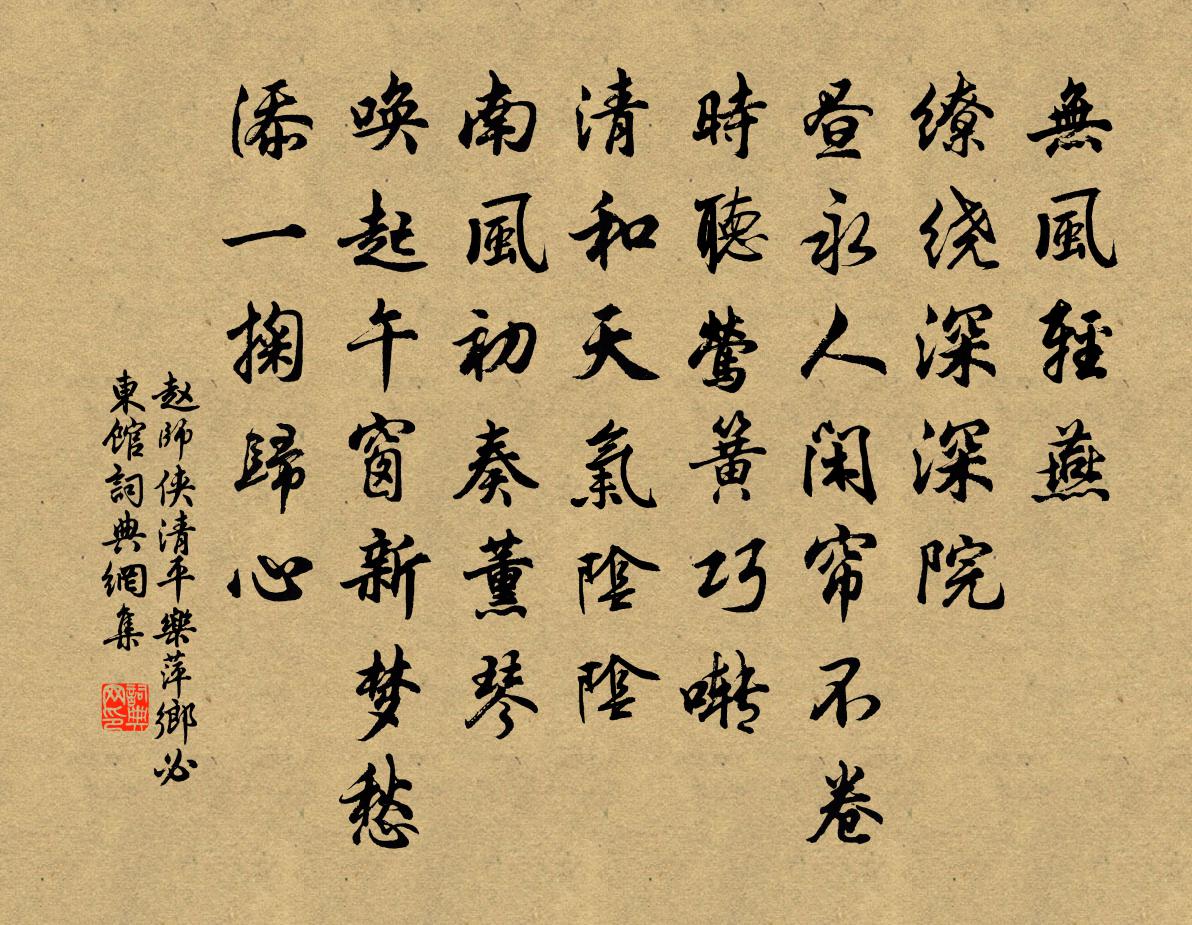 無風輕燕
繚绕深深院
昼永人闲帘不卷
時聽鶯簧巧啭
清和天氣陰陰
南風初奏薰琴
唤起午窗新梦愁
添一掬歸心
赵師侠清平樂萍鄉必
東馆詞典網集
詞典
网印